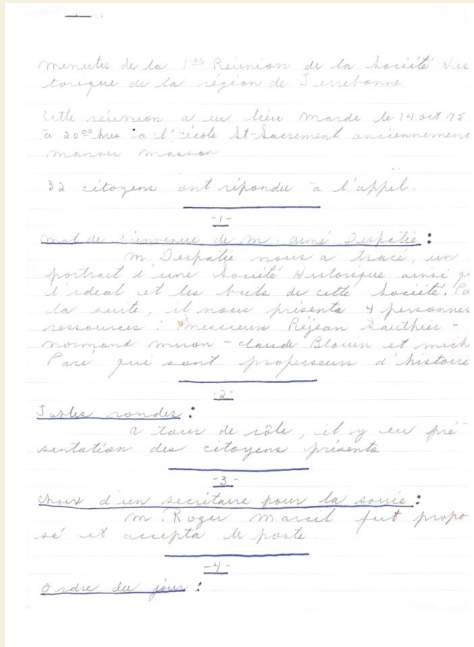 minutes de la 1ère Réunion de la Société His
torique de la région de Terrebonne
Cette réunion a eu lieu Mardi le 14 oct 75
à 20:00 hres à l'école St-Sacrement anciennement
manoir masson
32 citoyens ont répondu à l'appel.
-1-
mot de bienvenue de m. aimé Despatie :
m. Despatie nous a tracé, un
portrait d'une Société Historique ainsi q
l'idéal et les buts de cette Société. Pa
la suite, il nous présenta 4 personnes
ressources : messieurs Réjean Gauthier -
normand miron - claude Blouin et mich
Paré qui sont professeur d'histoire
-2-
Tables rondes :
a tour de rôle, il y eu pré-
sentation des citoyens présents
-3-
choix d'un secrétaire pour la soirée :
m. Roger Marcel fut propo
sé et accepta le poste.
-4-
Ordre du jour :